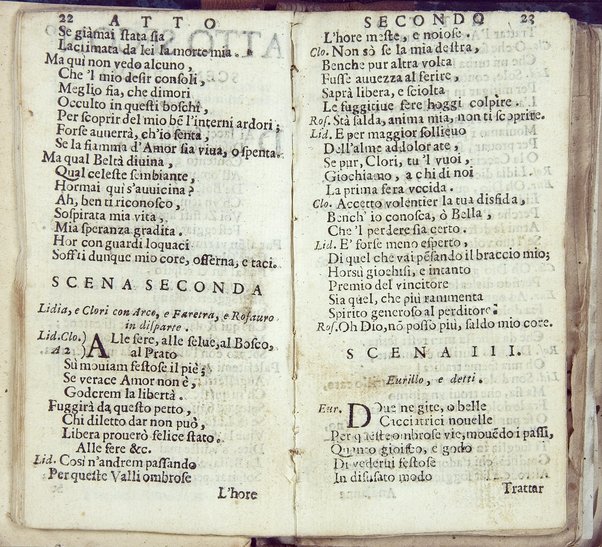 22 ATTO
Se giàmai stata sia
Lacrimata da lei la morte mia.
Ma qui non vedo alcuno,
Che 'l mio desir consoli,
Meglio fia, che dimori
Occulto in questi boschi,
Per scoprir del mio bẽ l'interni ardori;
Forse auuerrà, ch'io senta,
Se la fiamma d'Amor sia viua, o spenta.
Ma qual Beltà diuina,
Qual celeste sembiante,
Hormai qui s'auuicina?
Ah, ben ti riconosco,
Sospirata mia vita,
Mia speranza gradita.
Hor con guardi loquaci
Soffri dunque mio core, osserua, e taci.
SCENA SECONDA
Lidia, e Clori con Arco, e Faretra, e Rosauro
in disparte.
Lid.Clo. ALle fere, alle selue, al Bosco,
A 2 al Prato
Sù mouiam festose il piè;
Se verace Amor non è,
Goderem la libertà.
Fuggirà da questo petto,
Chi diletto dar non può,
Libera prouerò felice stato.
Alle fere &c.
Lid. Così n'andrem passando
Per queste Valli ombrose
L'hore
SECONDO 23
L'hore meste, e noiose.
Clo. Non sò se la mia destra,
Benche pur altra volta
Fusse auuezza al ferire,
Saprà libera, e sciolta
Le fuggitiue fere hoggi colpire.
Ros. Stà salda, anima mia, non ti scoprire.
Lid. E per maggior sollieuo
Dell'alme addolorate,
Se pur, Clori, tu 'l vuoi,
Giochiamo, a chi di noi
La prima fera vccida.
Clo. Accetto volentier la tua disfida,
Bench' io conosca, ò Bella,
Che 'l perdere sia certo.
Lid. E' forse meno esperto,
Di quel che vai pẽsando il braccio mio;
Horsù giochisi, e intanto
Premio del vincitore
Sia quel, che più rammenta
Spirito generoso al perditore.
Ros. Oh Dio, nõ posso più, saldo mio core.
SCENA III.
Eurillo, e detti.
Eur. DOue ne gite, o belle
Cacciatrici nouelle
Per queste ombrose vie, mouẽdo i passi,
Quanto gioisco, e godo
Di vederui festose
In disusato modo
Trattar